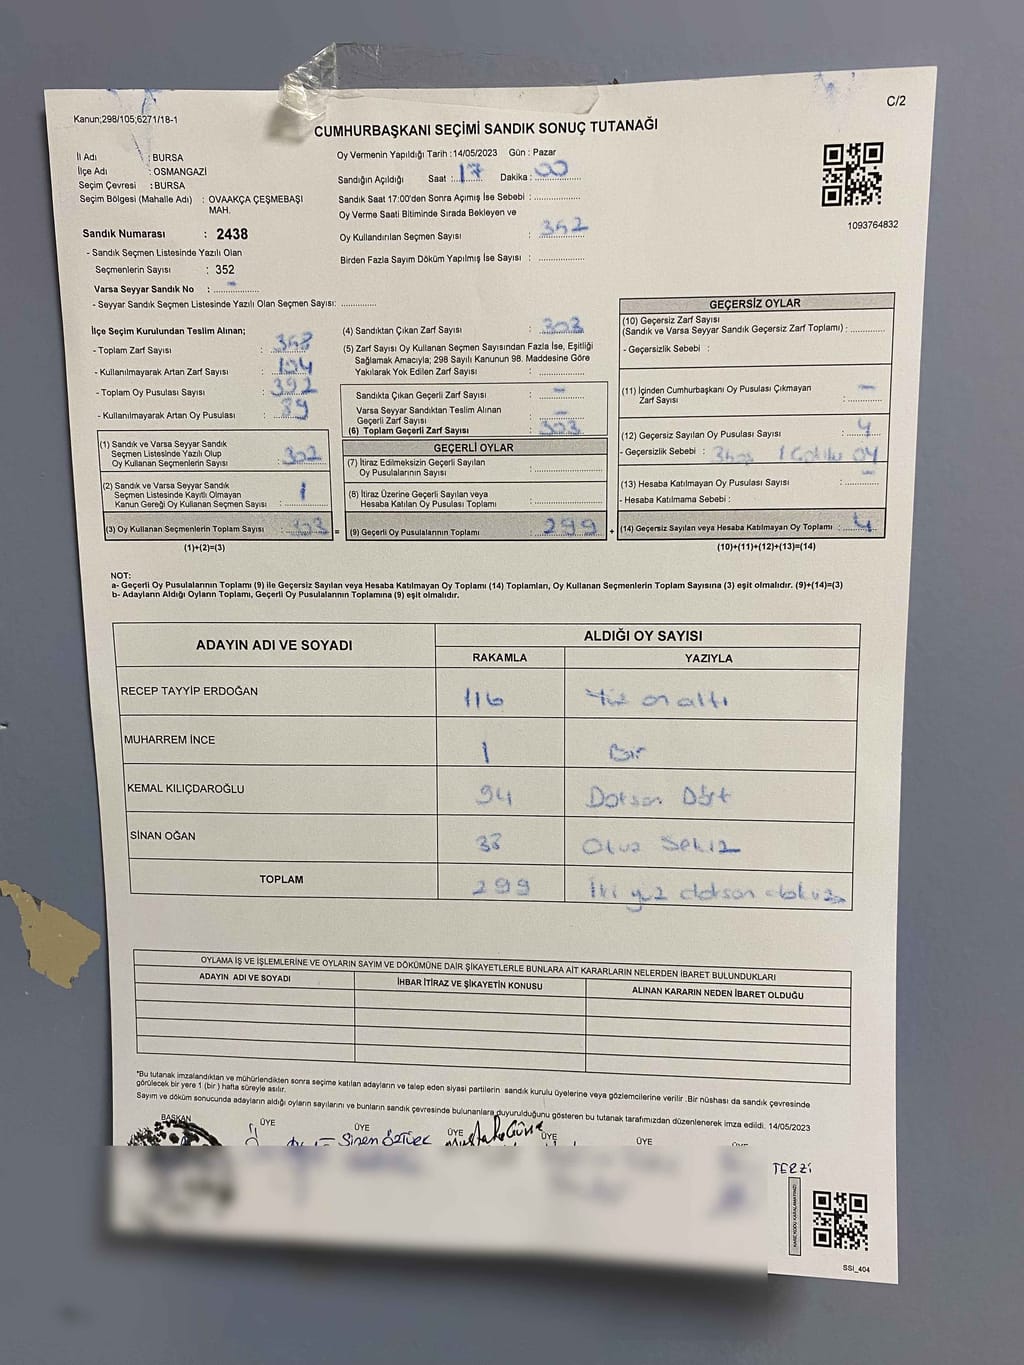 C/2
Kanun;298/105;6271/18-1
CUMHURBAŞKANI SEÇİMİ SANDIK SONUÇ TUTANAĞI
İl Adı : BURSA
İlçe Adı : OSMANGAZİ
Seçim Çevresi : BURSA
Seçim Bölgesi (Mahalle Adı) : OVAAKÇA ÇEŞMEBAŞI
MAH.
Sandık Numarası : 2438
- Sandık Seçmen Listesinde Yazılı Olan
Seçmenlerin Sayısı : 352
Varsa Seyyar Sandık No : -
- Seyyar Sandık Seçmen Listesinde Yazılı Olan Seçmen Sayısı: ..............
Oy Vermenin Yapıldığı Tarih :14/05/2023 Gün : Pazar
Sandığın Açıldığı Saat : 17 Dakika : 00
Sandık Saat 17:00'den Sonra Açımış İse Sebebi : ..............
Oy Verme Saati Bitiminde Sırada Bekleyen ve
Oy Kullandırılan Seçmen Sayısı : 352
Birden Fazla Sayım Döküm Yapılmış İse Sayısı : ..............
1093764832
İlçe Seçim Kurulundan Teslim Alınan;
- Toplam Zarf Sayısı :
- Kullanılmayarak Artan Zarf Sayısı : 104
- Toplam Oy Pusulası Sayısı : 392
- Kullanılmayarak Artan Oy Pusulası : 89
(1) Sandık ve Varsa Seyyar Sandık
Seçmen Listesinde Yazılı Olup
Oy Kullanan Seçmenlerin Sayısı : 302
(2) Sandık ve Varsa Seyyar Sandık
Seçmen Listesinde Kayıtlı Olmayan
Kanun Gereği Oy Kullanan Seçmen Sayısı : 1
(3) Oy Kullanan Seçmenlerin Toplam Sayısı : 303 =
(1)+(2)=(3)
(4) Sandıktan Çıkan Zarf Sayısı : 303
(5) Zarf Sayısı Oy Kullanan Seçmen Sayısından Fazla İse, Eşitliği
Sağlamak Amacıyla; 298 Sayılı Kanunun 98. Maddesine Göre
Yakılarak Yok Edilen Zarf Sayısı : ..............
Sandıkta Çıkan Geçerli Zarf Sayısı : -
Varsa Seyyar Sandıktan Teslim Alınan
Geçerli Zarf Sayısı : -
(6) Toplam Geçerli Zarf Sayısı : 303
GEÇERLİ OYLAR
(7) İtiraz Edilmeksizin Geçerli Sayılan
Oy Pusulalarının Sayısı : ..............
(8) İtiraz Üzerine Geçerli Sayılan veya
Hesaba Katılan Oy Pusulası Toplamı : ..............
(9) Geçerli Oy Pusulalarının Toplamı : 299 +
GEÇERSİZ OYLAR
(10) Geçersiz Zarf Sayısı
(Sandık ve Varsa Seyyar Sandık Geçersiz Zarf Toplamı) : ..............
- Geçersizlik Sebebi :
(11) İçinden Cumhurbaşkanı Oy Pusulası Çıkmayan
Zarf Sayısı : -
(12) Geçersiz Sayılan Oy Pusulası Sayısı : 4
- Geçersizlik Sebebi : 1 oy
(13) Hesaba Katılmayan Oy Pusulası Sayısı : -
- Hesaba Katılmama Sebebi :
(14) Geçersiz Sayılan veya Hesaba Katılmayan Oy Toplamı : 4
(10)+(11)+(12)+(13)=(14)
NOT:
a- Geçerli Oy Pusulalarının Toplamı (9) ile Geçersiz Sayılan veya Hesaba Katılmayan Oy Toplamı (14) Toplamları, Oy Kullanan Seçmenlerin Toplam Sayısına (3) eşit olmalıdır. (9)+(14)=(3)
b- Adayların Aldığı Oyların Toplamı, Geçerli Oy Pusulalarının Toplamına (9) eşit olmalıdır.
ADAYIN ADI VE SOYADI ALDIĞI OY SAYISI
RAKAMLA YAZIYLA
RECEP TAYYİP ERDOĞAN 116 Yüz on altı
MUHARREM İNCE 1 Bir
KEMAL KILIÇDAROĞLU 94 Doksan Dört
SİNAN OĞAN 38 Otuz Sekiz
TOPLAM 299 İki yüz doksan dokuz
OYLAMA İŞ VE İŞLEMLERİNE VE OYLARIN SAYIM VE DÖKÜMÜNE DAİR ŞİKAYETLERLE BUNLARA AİT KARARLARIN NELERDEN İBARET BULUNDUKLARI
ADAYIN ADI VE SOYADI İHBAR İTİRAZ VE ŞİKAYETİN KONUSU ALINAN KARARIN NEDEN İBARET OLDUĞU
*Bu tutanak imzalandıktan ve mühürlendikten sonra seçime katılan adayların ve talep eden siyasi partilerin sandık kurulu üyelerine veya gözlemcilerine verilir .Bir nüshası da sandık çevresinde
görülecek bir yere 1 (bir ) hafta süreyle asılır.
Sayım ve döküm sonucunda adayların aldığı oyların sayılarını ve bunların sandık çevresinde bulunanlara duyurulduğunu gösteren bu tutanak tarafımızdan düzenlenerek imza edildi. 14/05/2023
BAŞKAN ÜYE ÜYE ÜYE ÜYE ÜYE
Sinen ÖZTÜRK
TERZİ
SSI_404